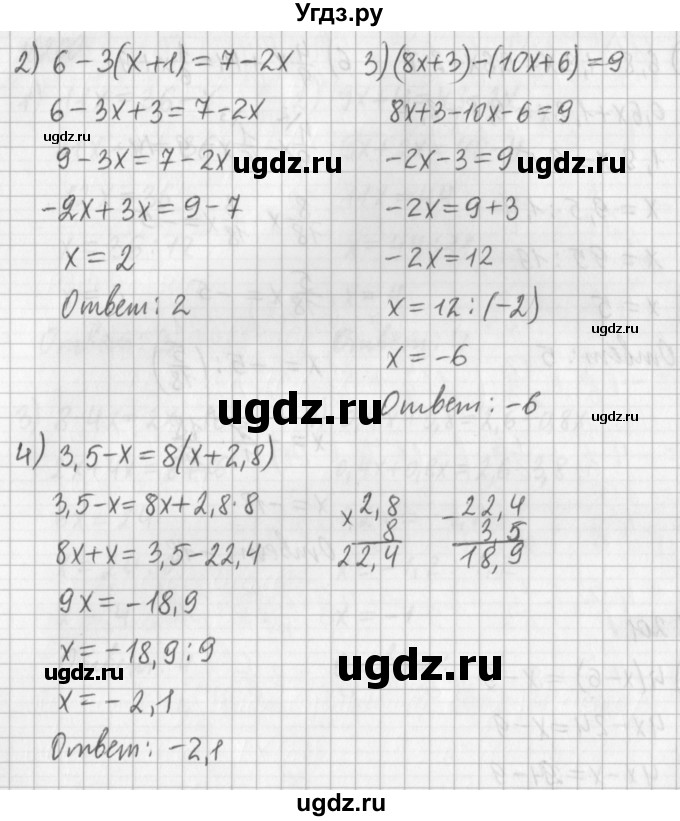 Угдз.ру
2) 6 - 3(x+1) = 7 - 2x
6 - 3x + 3 = 7 - 2x
9 - 3x = 7 - 2x
-2x + 3x = 9 - 7
x = 2
Ответ: 2
3) (8x+3) - (10x+6) = 9
8x+3-10x-6=9
-2x-3=9
-2x=9+3
-2x=12
x=12:(-2)
x=-6
Ответ: -6
4) 3,5-x=8(x+2,8)
3,5-x=8x+2,8·8
8x+x=3,5-22,4
9x=-18,9
x=-18,9:9
x=-2,1
Ответ: -2,1
x 2,8
8
22,4
- 22,4
3,5
18,9
ugdz.ru
ugdz.ru
ugdz.ru
ugdz.ru
ugdz.ru
ugdz.ru
ugdz.ru
ugdz.ru
ugdz.ru